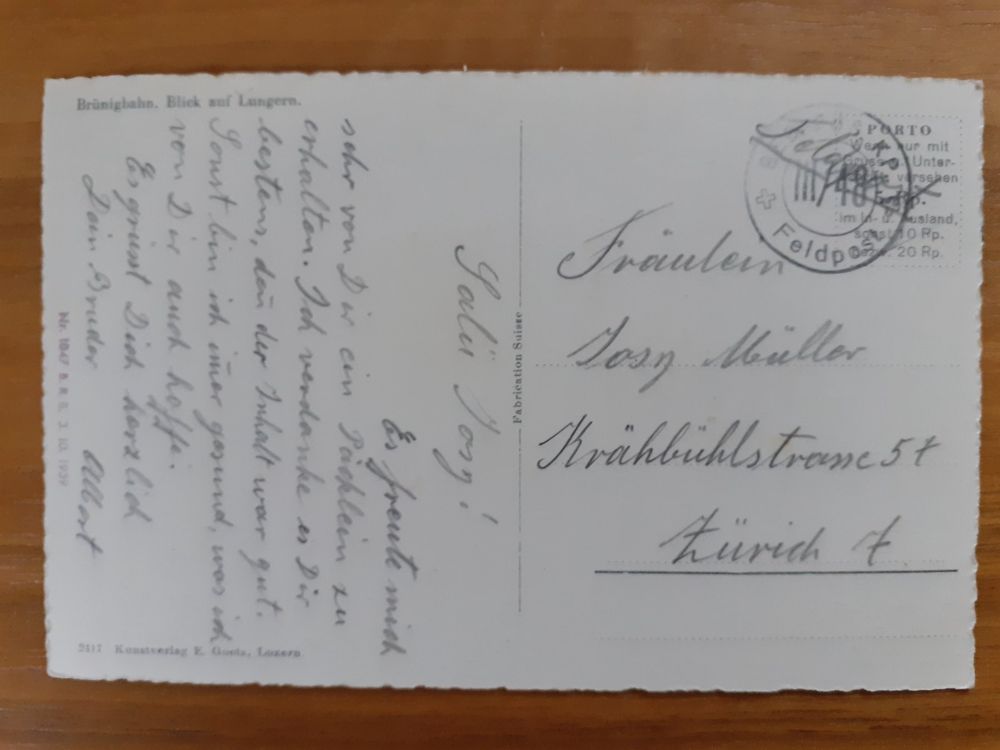 Brünigbahn. Blick auf Lungern.
Salü Josy!
Es freute mich
sehr von Dir ein Päcklein zu
erhalten. Ich verdanke es Dir
bestens, den der Inhalt war gut.
Sonst bin ich imer gesund, was ich
von Dir auch hoffe.
Es grüsst Dich herzlich
Dein Bruder Albert
Nr. 1847 B.R.B. 3. 10. 1939
2117 Kunstverlag E. Goetz, Luzern
Fabrication Suisse
PORTO
Wenn nur mit
Gruss u. Unter-
versehen
5 Rp.
im In- u. Ausland,
sonst 10 Rp.
bezw. 20 Rp.
III/48
Feldpost
Fräulein
Josy Müller
Krähbühlstrasse 57
Zürich 7